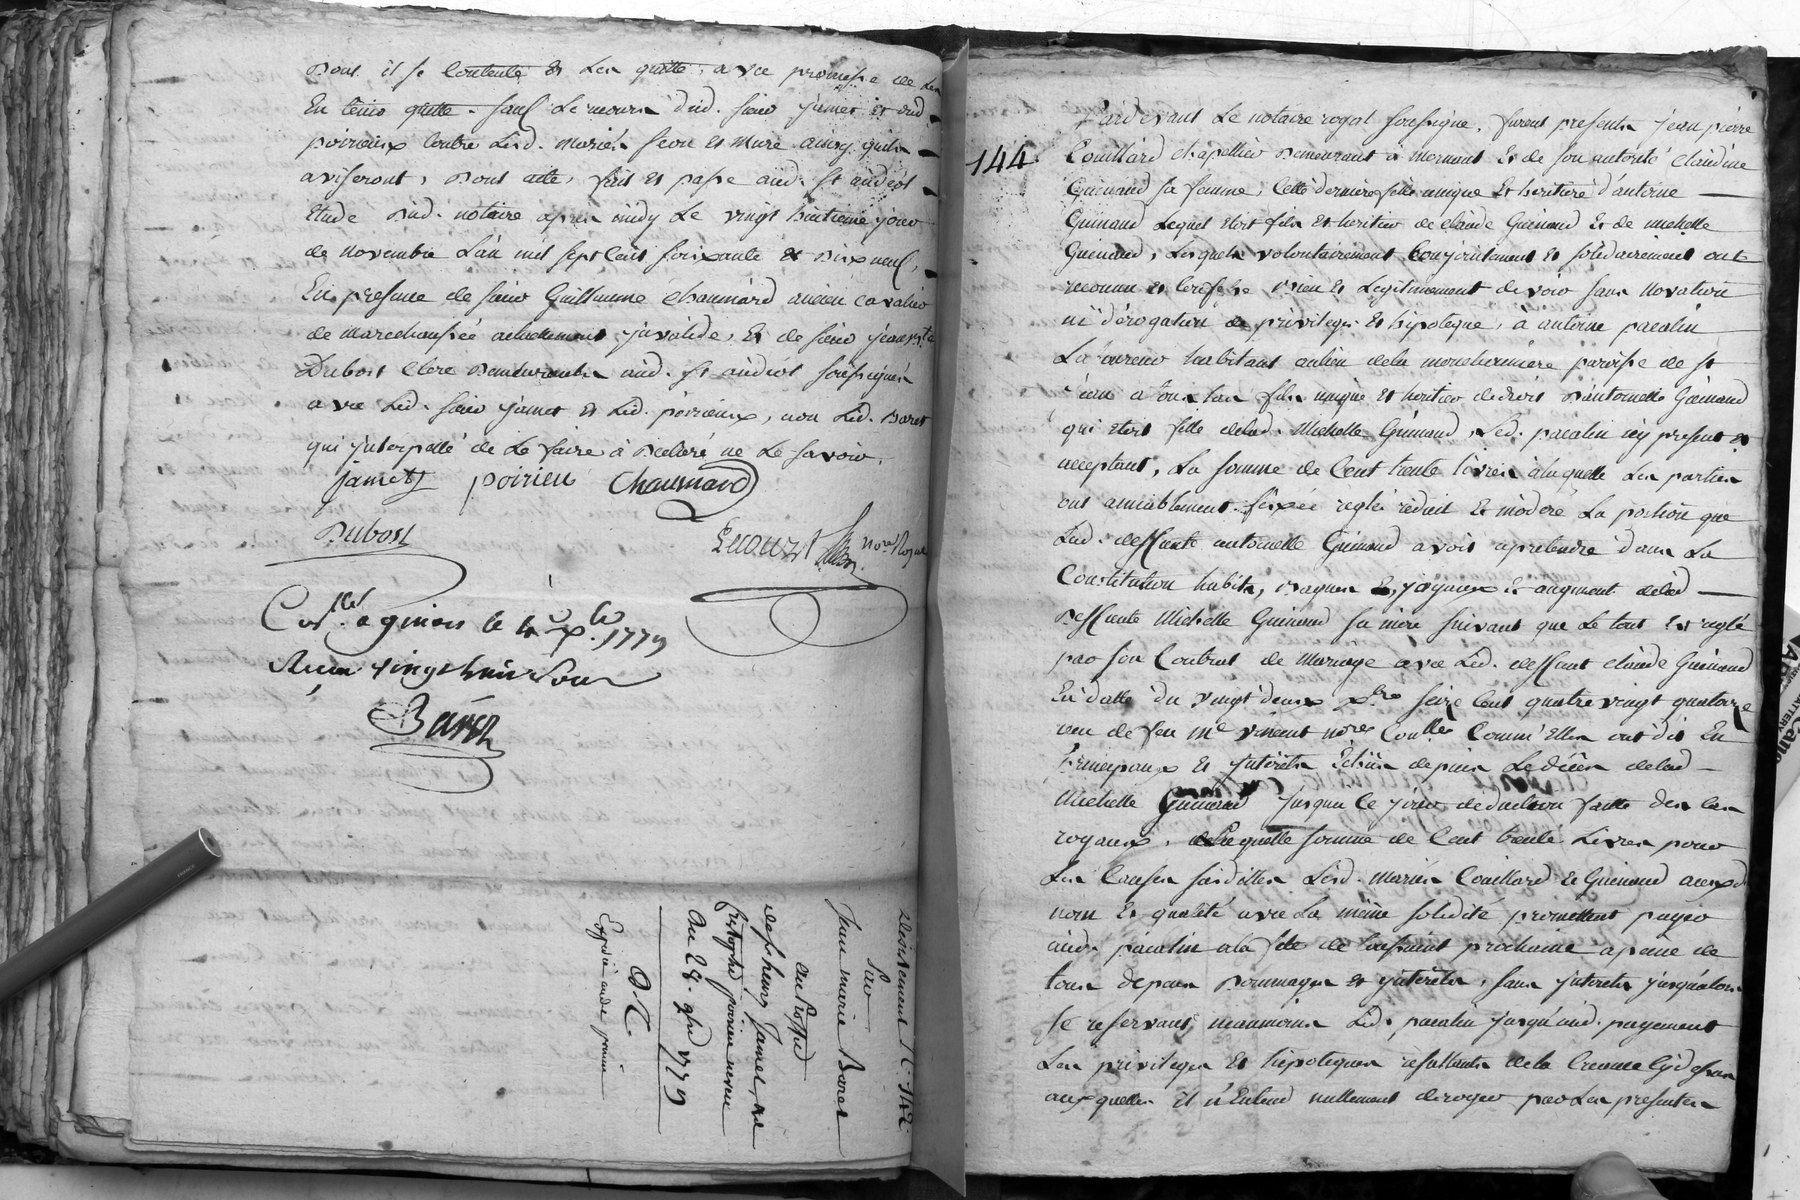 dont il se contente et les quitte, avec promesse de les
En tenir quitte. sauf le recours dud. sieur jamet et dud.
poirieux contre lesd. mariés Seon et Mure ainsy quils
aviseront, Dont acte, fait et passé aud. st andéol
Etude dud. notaire après midy Le vingt huitieme jour
de novembre L'an mil sept cent soixante et dix neuf,
En presence de sieur Guillaume Chaumard ancien cavalier
de marechaussée actuellement invalide, et de sieur jean
Dubost Clerc demeurants aud. st andéol soussignés
avec Led. sieur jamet et Led. poirieux, non Led. Baret
qui interpellé de Le faire a declaré ne Le savoir.
jamet poirieu Chaumard
Dubost
nore Royal
a givors le 4 1779
Reçu vingt huit sous
Desistement
Par
Jean marie Baret
au Proffit
des srs henry Jamet, et
fristophe poirieu
Du 28. 9bre 1779
144
Pardevant Le notaire royal soussigné, furent presents jean pierre
Couillard chapellier demeurant à mornant et de son autorité claudine
Guinand sa femme, Cette derniere fille unique et heritiere d'antoine
Guinand Lequel etoit fils et heritier de claude Guinand et de michelle
Guinand, Lesquels volontairement conjointement et solidairement ont
reconnu et confessé, bien et Legitimement devoir sans novation
ni dérogation de privileges et hipoteque, à antoine pacalin
Laboureur habitant au lieu de la paroisse de st
jean a fils unique et heritier de droit d'antoinette Guinand
qui etoit fille de lad. Michelle Guinand, Led. pacalin icy present et
acceptant, La somme de Cent trente livres à laquelle Les parties
ont amiablement fixée reglé reduit et moderé La portion que
Lad. deffunte antoinette Guinand avoit a prendre dans La
Constitution habits, bagues et joyaux et augment de lad.
deffunte Michelle Guinand sa mere suivant que Le tout est reglé
par son Contrat de mariage avec Led. deffunt claude Guinand
En datte du vingt deux xbre seize Cent quatre vingt quatorze
reçu de feu me vincent nore Comm'Elles ont dit En
Principaux et interets Echus depuis Le décès de lad.
Michelle Guinand jusqu'a ce jour deduction faitte des cas
royaux, de Laquelle somme de Cent trente Livres pour
Les Causes susdittes Lesd. mariés Couillard et Guinand auxd.
nom et qualité avec La même solidité promettent payer
aud. pacalin a la fête de toussaint prochaine a peine de
tous depens Dommages et interets, sans interets jusqu'alors
se reservant neanmoins Led. pacalin jusqu'aud. payement
Les privileges et hipoteques resultants de la Creance cydessus
auxquelles il n'Entend nullement deroger par Les presentes